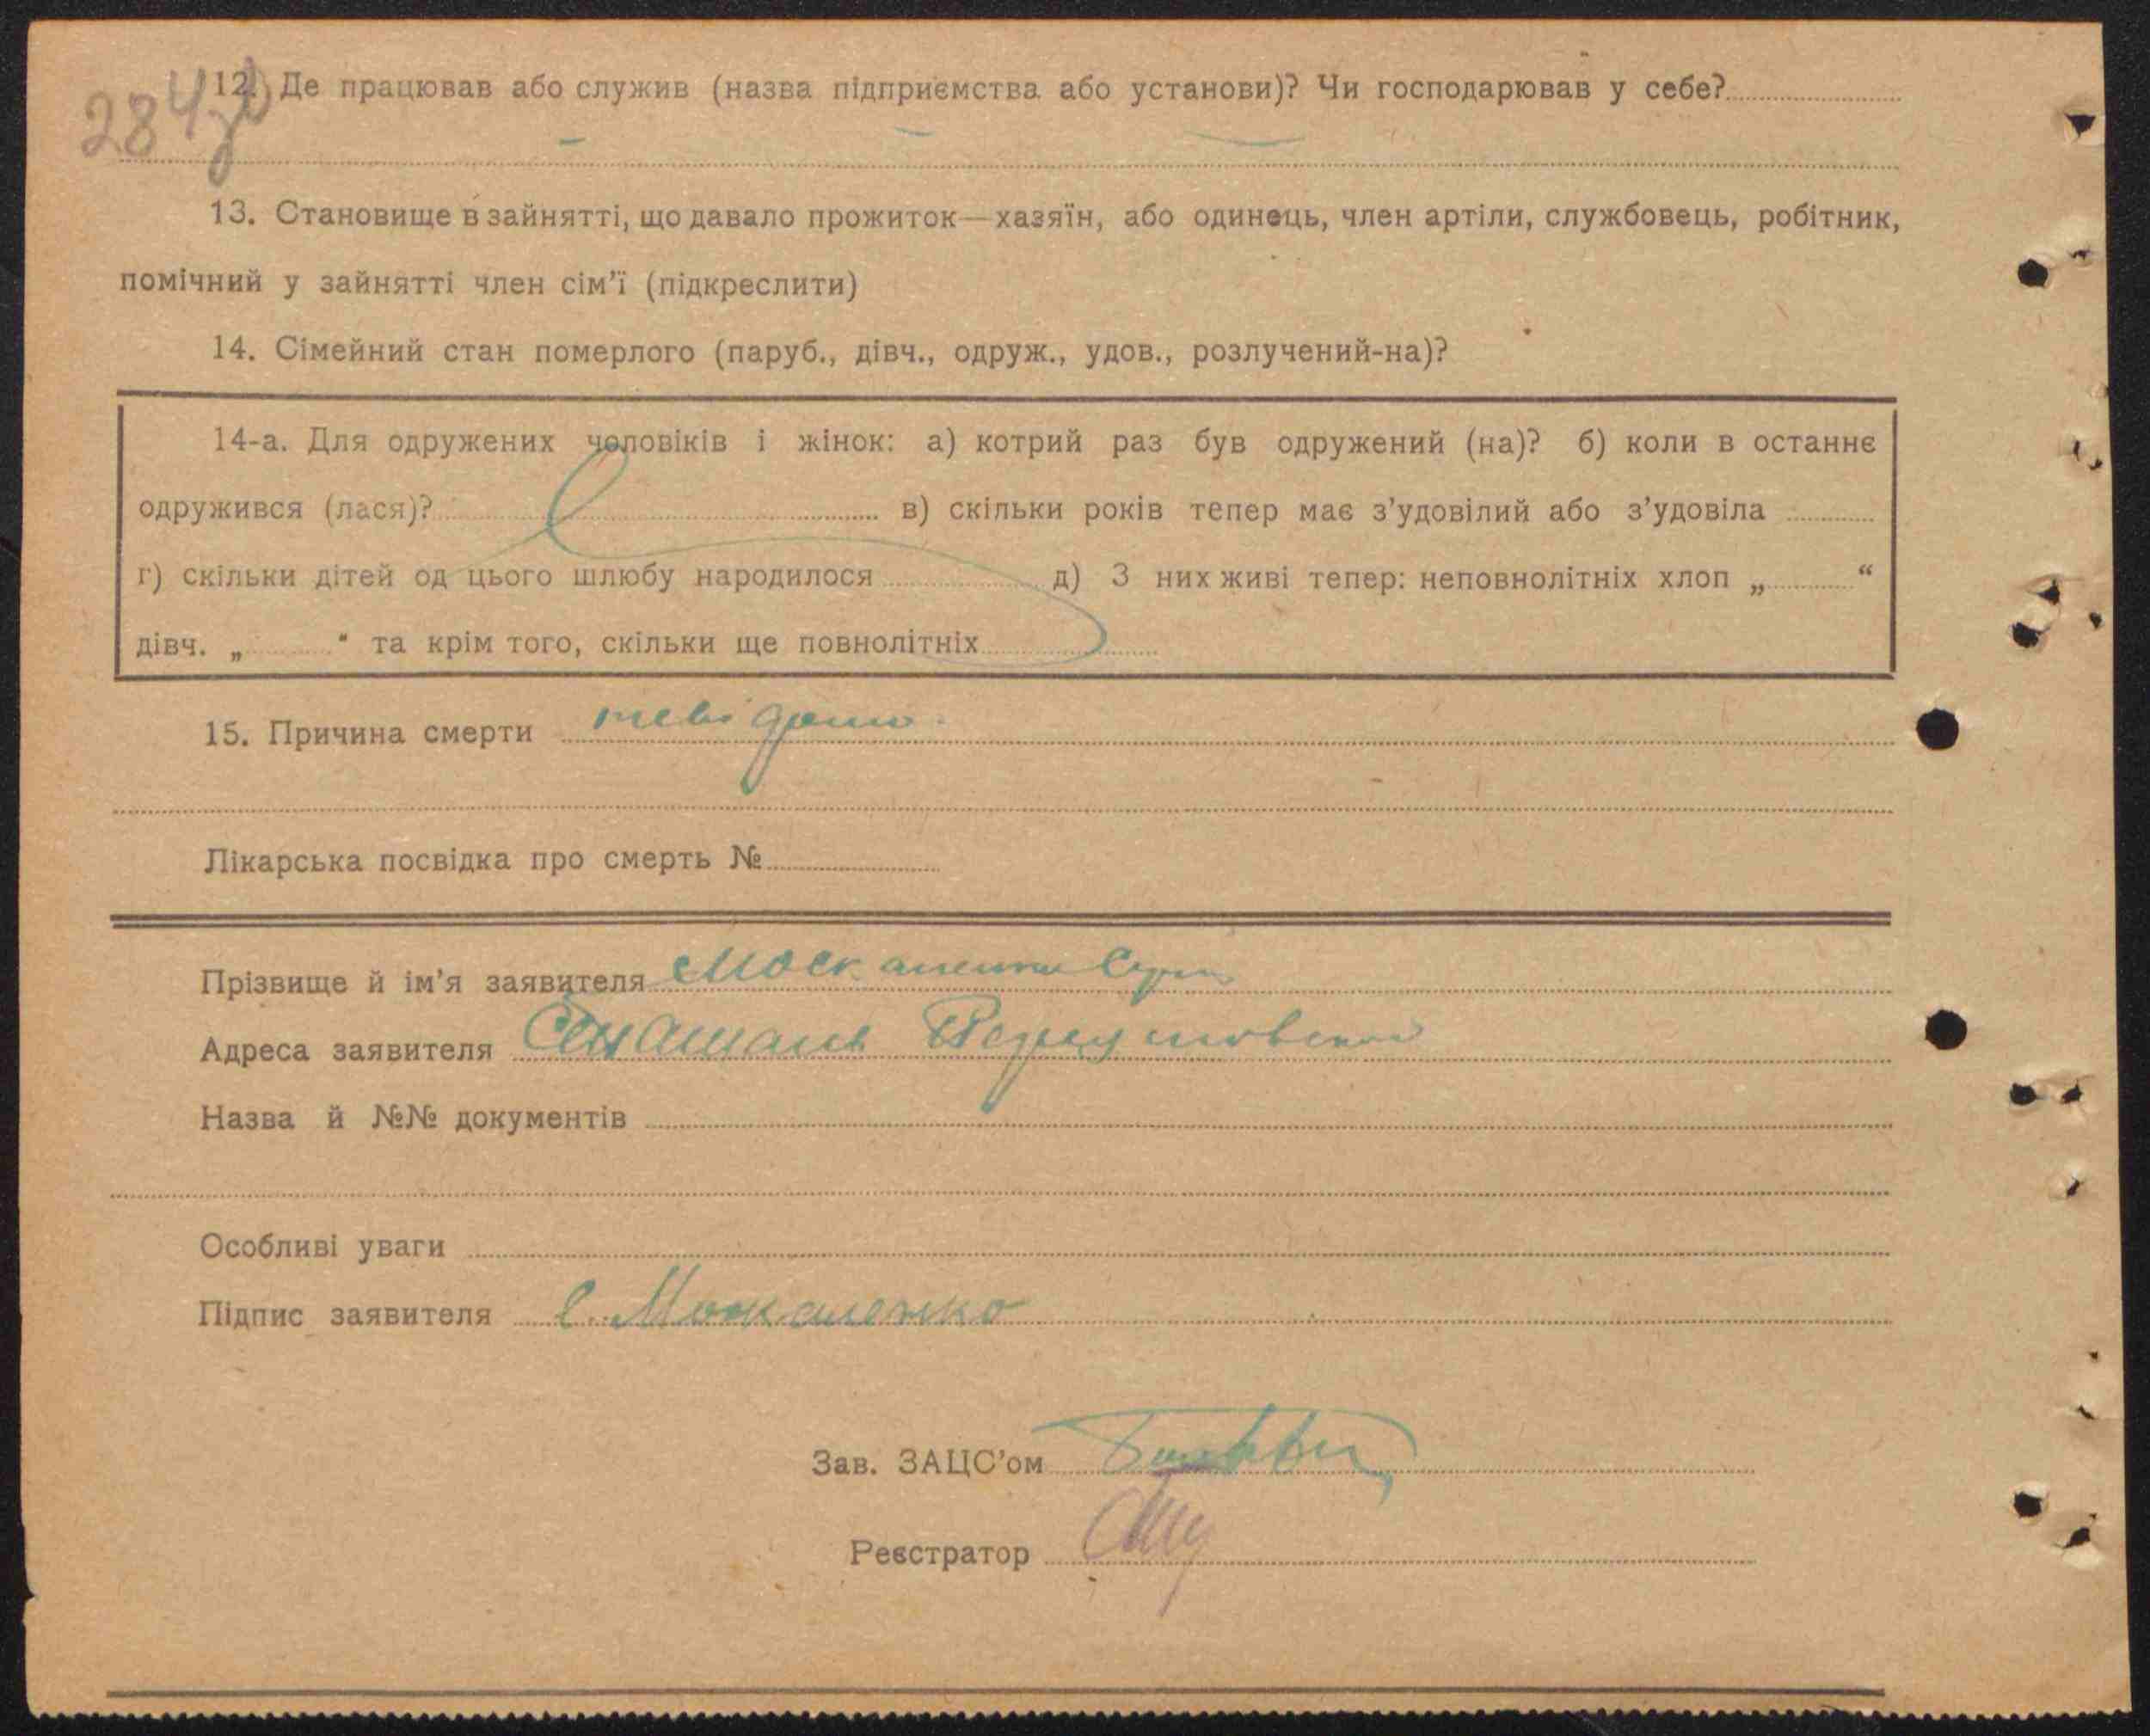 284
12. Де працював або служив (назва підприємства або установи)? Чи господарював у себе?
13. Становище в зайнятті, що давало прожиток—хазяїн, або одинець, член артіли, службовець, робітник,
помічний у зайнятті член сім'ї (підкреслити)
14. Сімейний стан померлого (паруб., дівч., одруж., удов., розлучений-на)?
14-а. Для одружених чоловіків і жінок: а) котрий раз був одружений (на)? б) коли в останнє
одружився (лася)? в) скільки років тепер має з'удовілий або з'удовіла
г) скільки дітей од цього шлюбу народилося д) З них живі тепер: неповнолітніх хлоп „ “
дівч. „ “ та крім того, скільки ще повнолітніх
15. Причина смерти невідомо.
Лікарська посвідка про смерть №
Прізвище й ім'я заявителя Москаленко
Адреса заявителя
Назва й №№ документів
Особливі уваги
Підпис заявителя С. Москаленко
Зав. ЗАЦС'ом
Реєстратор